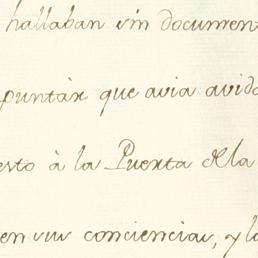 hallaban sin document
puntàr que avia avido
esto à la Puerta de la
en sus conciencias, y la